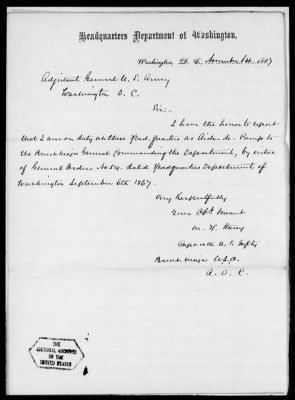 Headquarters Department of Washington,
Washington, D. C., November 1867
Adjutant General U. S. Army
Washington D. C.
Sir:-
I have the honor to report
that I am on duty at these Head-quarters as Aide-de-Camp to
the Brevet Major General Commanding the Department, by virtue
of General Orders No 54. dated Headquarters Department of
Washington September 6th 1867.
Very Respectfully
Your Obt Servant
M. W.
Capt U. S. Infty
Brevet Major U.S.A.
A. D. C.
THE
NATIONAL ARCHIVES
OF THE
UNITED STATES